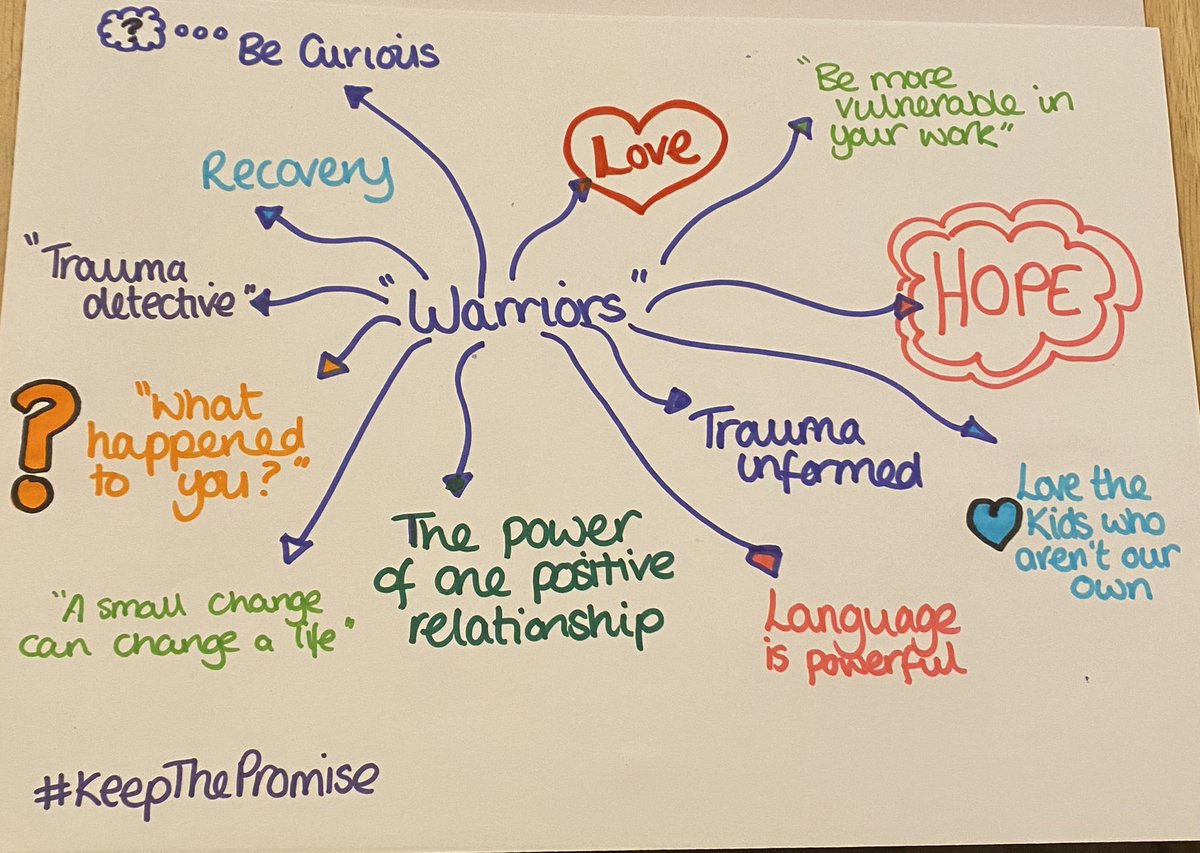 ?
Be Curious
Love
"Be more
vulnerable in
your work"
Recovery
"Trauma
detective"
"Warriors"
HOPE
?
"What
happened
to you?"
Trauma
informed
Love the
Kids who
aren't our
own
The power
of one positive
relationship
"A small change
can change a life"
Language
is powerful
#KeepThePromise